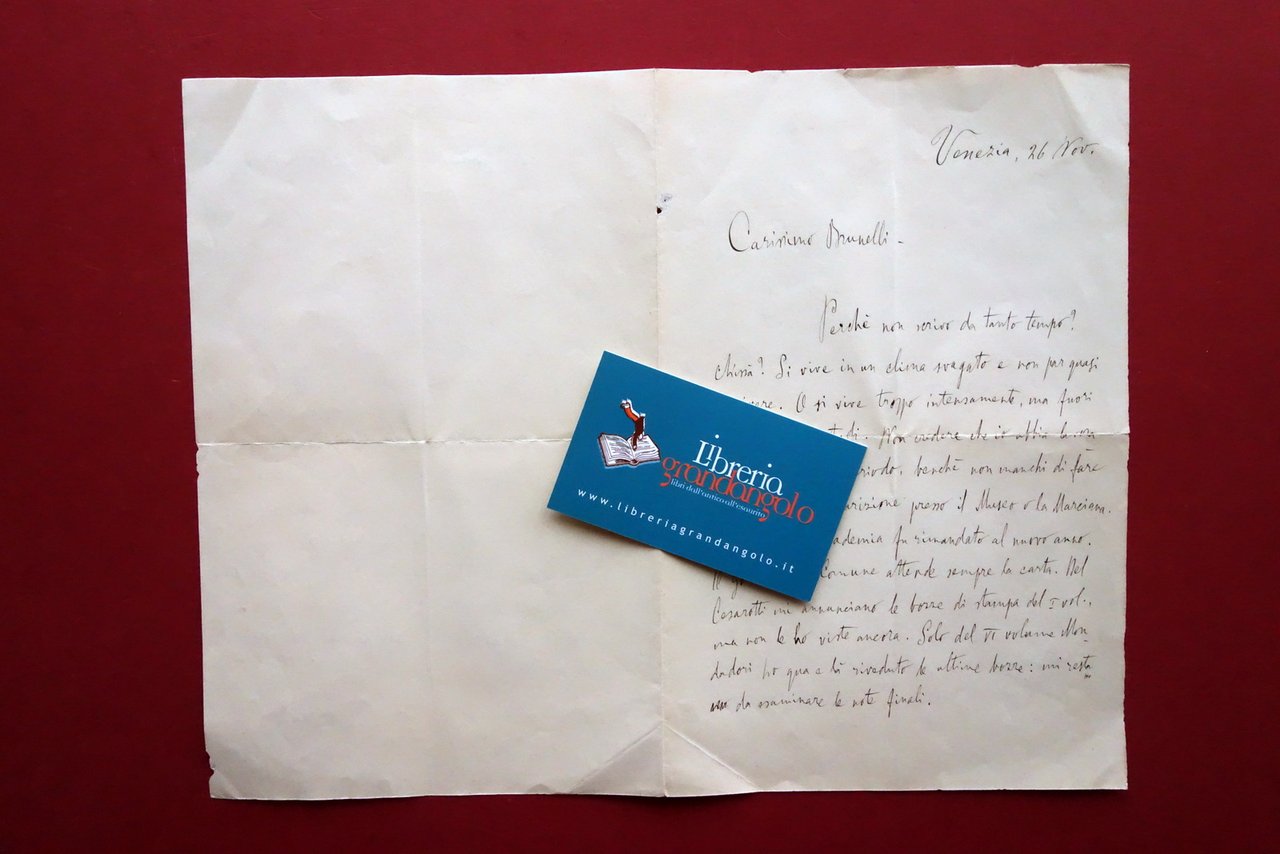 Venezia, 26 Nov.
Carissimo Brunelli -
Perchè non scrivo da tanto tempo?
chissà? Si vive in un clima svagato e non par quasi
O si vive troppo intensamente, ma fuori
Non credere che io abbia
benchè non manchi di fare
presso il Museo o la Marciana.
fu rimandato al nuovo anno.
Comune attende sempre la carta. Del
Cesarotti mi annunciano le bozze di stampa del I vol.,
ma non le ho viste ancora. Solo del VI volume Mon-
dadori ho qua e là riveduto le ultime bozze: mi resta
da esaminare le note finali.
Libreria
grandangolo
libri dall'antico all'esaurito
www.libreriagrandangolo.it